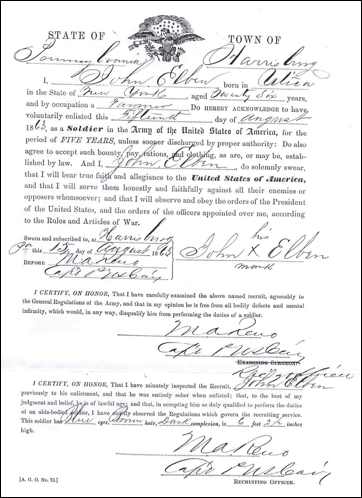 STATE OF TOWN OF
Pennsylvania Harrisburg
I, John Elben born in Utica
in the State of New York, aged Twenty Six years,
and by occupation a Farmer Do HEREBY ACKNOWLEDGE to have
voluntarily enlisted this Fifteenth day of August
1863, as a Soldier in the Army of the United States of America, for the
period of FIVE YEARS, unless sooner discharged by proper authority: Do also
agree to accept such bounty, pay, rations, and clothing, as are, or may be, estab-
lished by law. And I, John Elben do solemnly swear,
that I will bear true faith and allegiance to the United States of America,
and that I will serve them honestly and faithfully against all their enemies or
opposers whomsoever; and that I will observe and obey the orders of the President
of the United States, and the orders of the officers appointed over me, according
to the Rules and Articles of War.
Sworn and subscribed to, at Harrisburg
Pa this 15 day of August 1863
BEFORE M A Reno
Capt
his
John X Elben
mark
I CERTIFY, ON HONOR, That I have carefully examined the above named recruit, agreeably to
the General Regulations of the Army, and that in my opinion he is free from all bodily defects and mental
infirmity, which would, in any way, disqualify him from performing the duties of a soldier.
M A Reno
Capt
EXAMINING SURGEON
John Elben
I CERTIFY, ON HONOR, That I have minutely inspected the Recruit,
previously to his enlistment, and that he was entirely sober when enlisted; that, to the best of my
judgment and belief, he is of lawful age; and that, in accepting him as duly qualified to perform the duties
of an able-bodied soldier, I have strictly observed the Regulations which govern the recruiting service.
This soldier has Blue eyes, Brown hair, Dark complexion, is 6 feet 2 1/2 inches
high.
M A Reno
Capt
RECRUITING OFFICER.
[A. G. O. No. 73.]